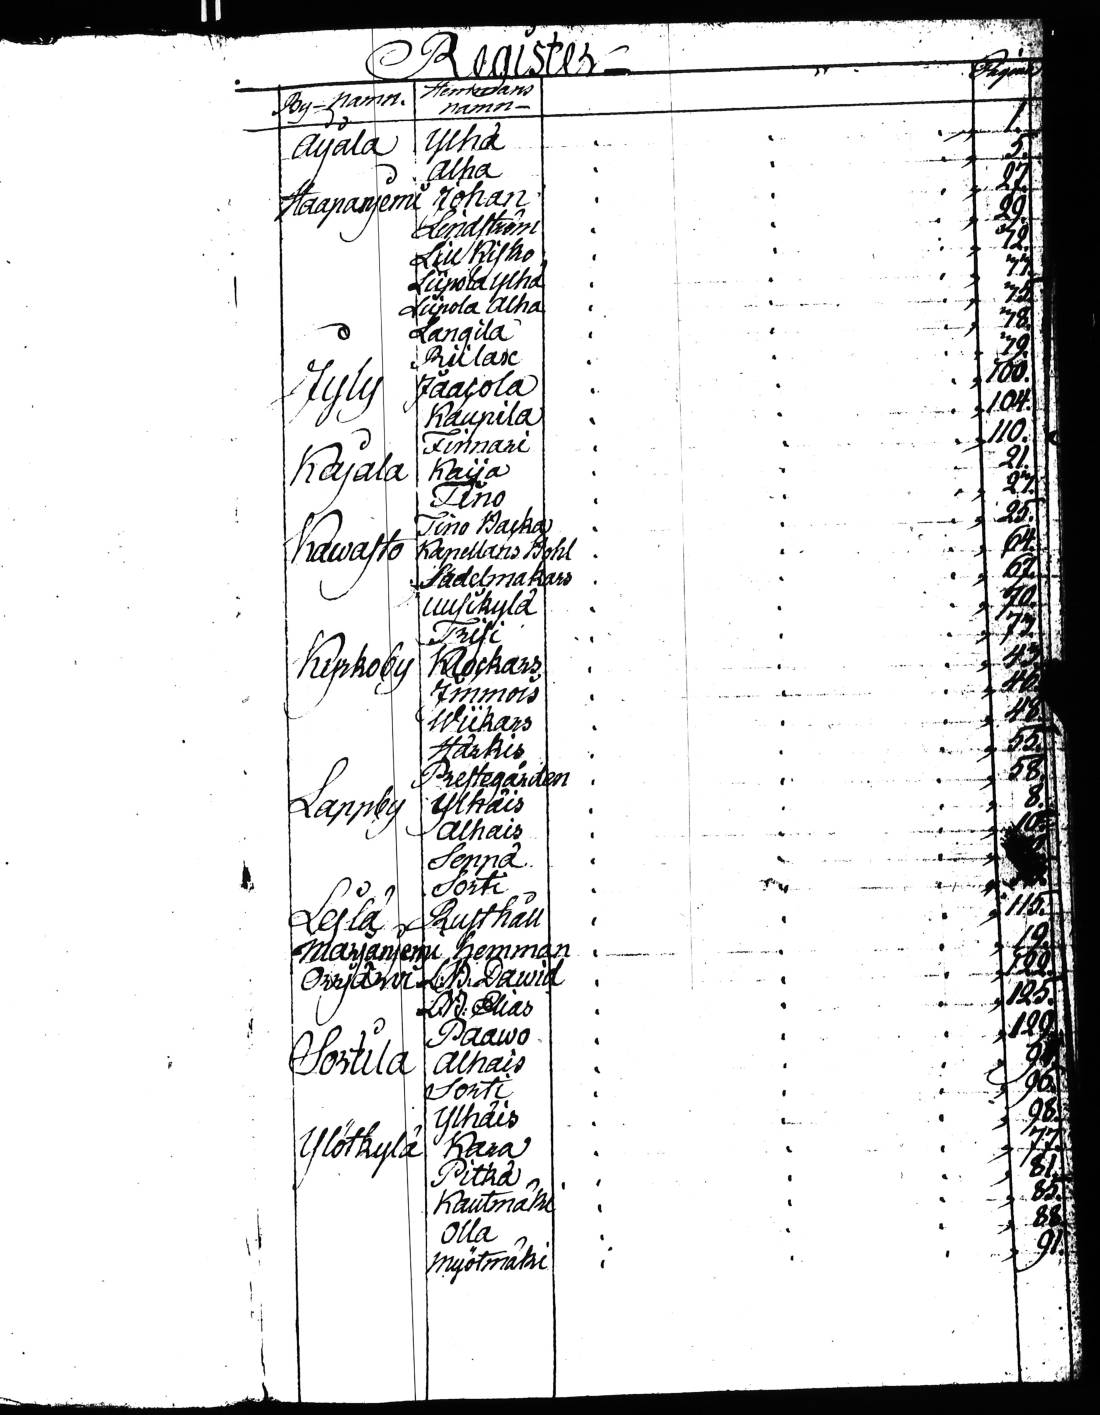 Register
By-namn. Hemmans namn Pagina
Äÿälä Ylhä 1.
Alha 5.
Haapaniemi Johan 27.
Lindström 29.
Liu Kisko 72.
Liipola Ylhä 77.
Liipola Alha 75.
Langila 78.
Riilax 79.
Jyly Jaacola 100.
Kaupila 104.
Finnari 110.
Kåÿala Kaija 21.
Tino 27.
Tino Backa 25.
Kawasto Kapellans Bohl 64.
Sadelmakars 67.
Uusikylä 70.
Trisi
Kyrkoby Klockars 43.
Immois 46.
Wiikars 48.
Härkis 55.
Prestegården 58.
Lappby Ylhäis 8.
Alhais 10.
Seppä
Sorti
Leslä Rusthåll 115.
Marjaniemi Hemman 19.
Orrjärvi L.B. Dawid 122.
L.B. Elias 125.
Paawo 129.
Sortila Alhais
Sorti 96.
Ylhäis 98.
Ylötkylä Kara 77.
Pitkä 81.
Kautmäki 85.
Olla 88.
Myötmäki 91.